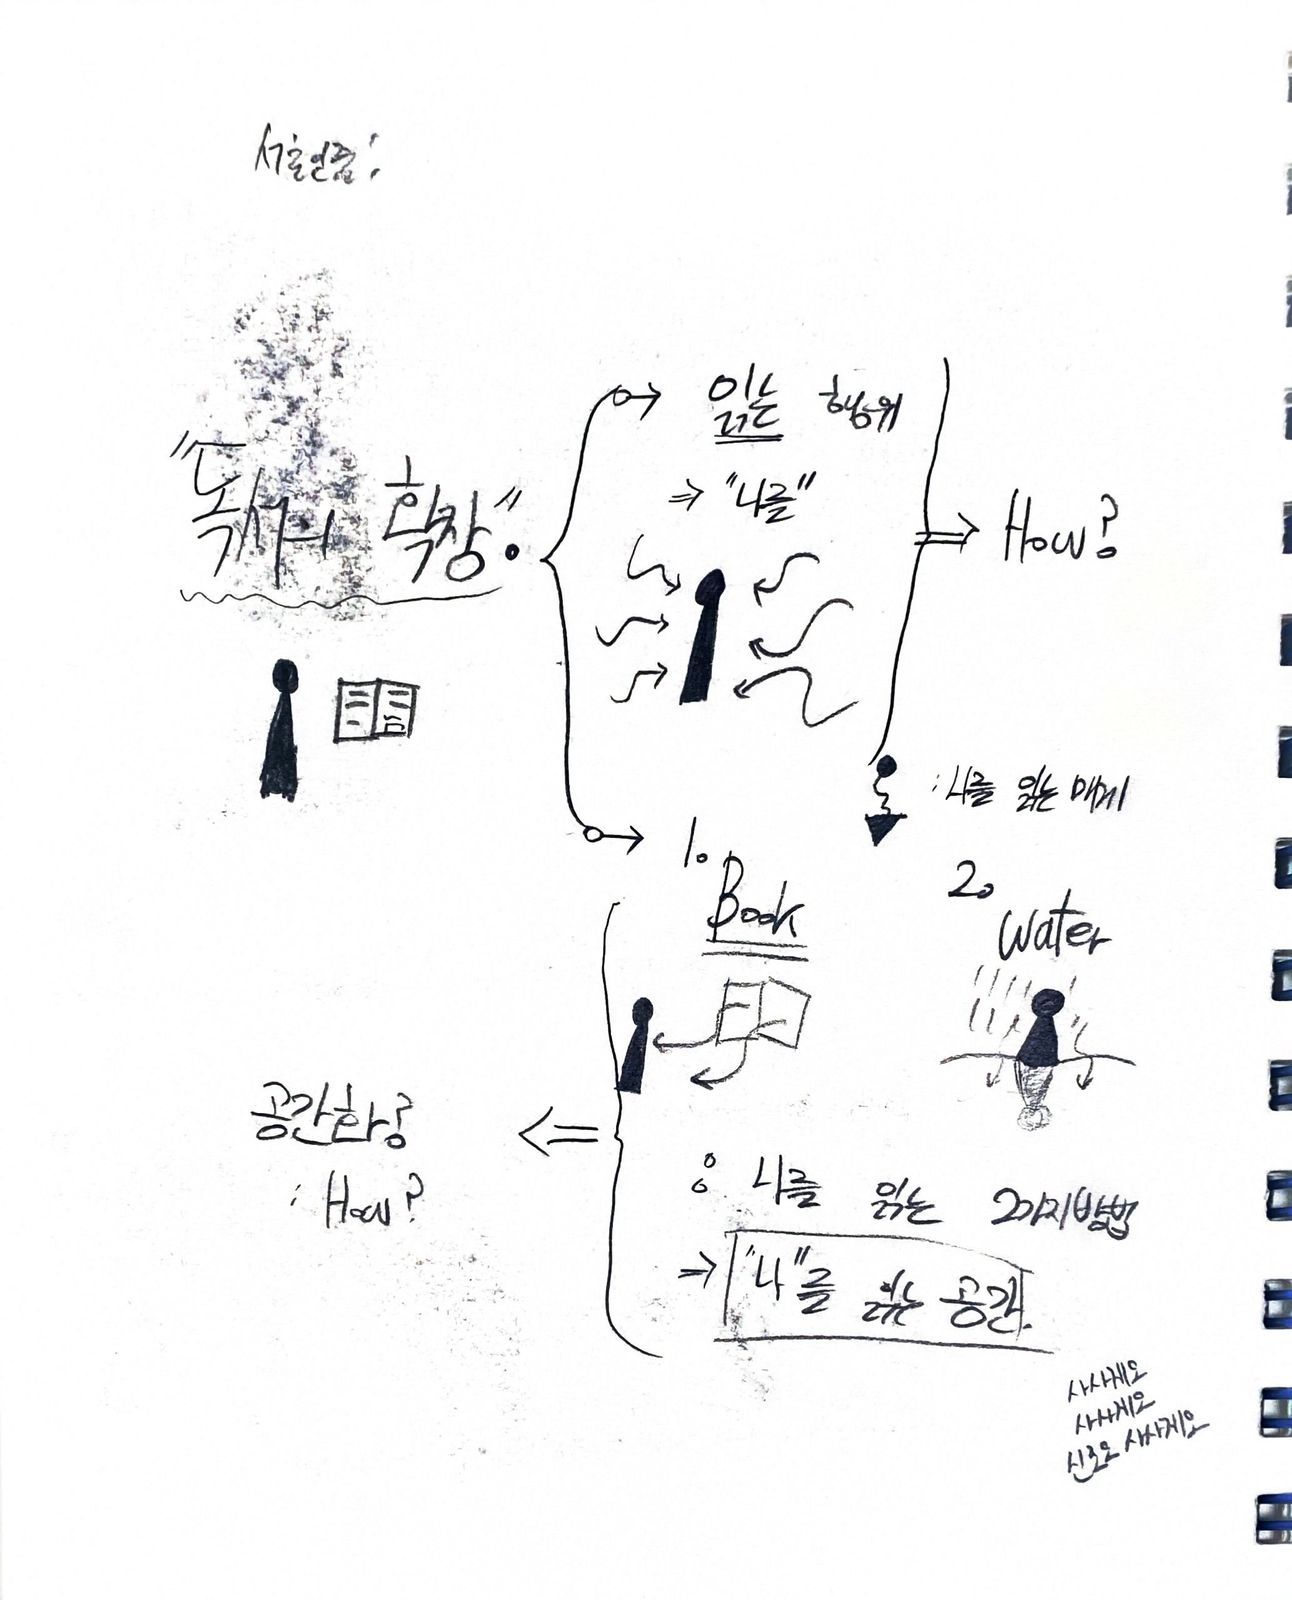 "독서의 확장".
읽는 행위
⇒ "나를"
⇒ How?
: 나를 읽는 매개
1. Book
2. Water
공간화?
: How?
: 나를 읽는 2가지방법
⇒ "나"를 읽는 공간.
사사게오
사사게오
신조오 사사게오